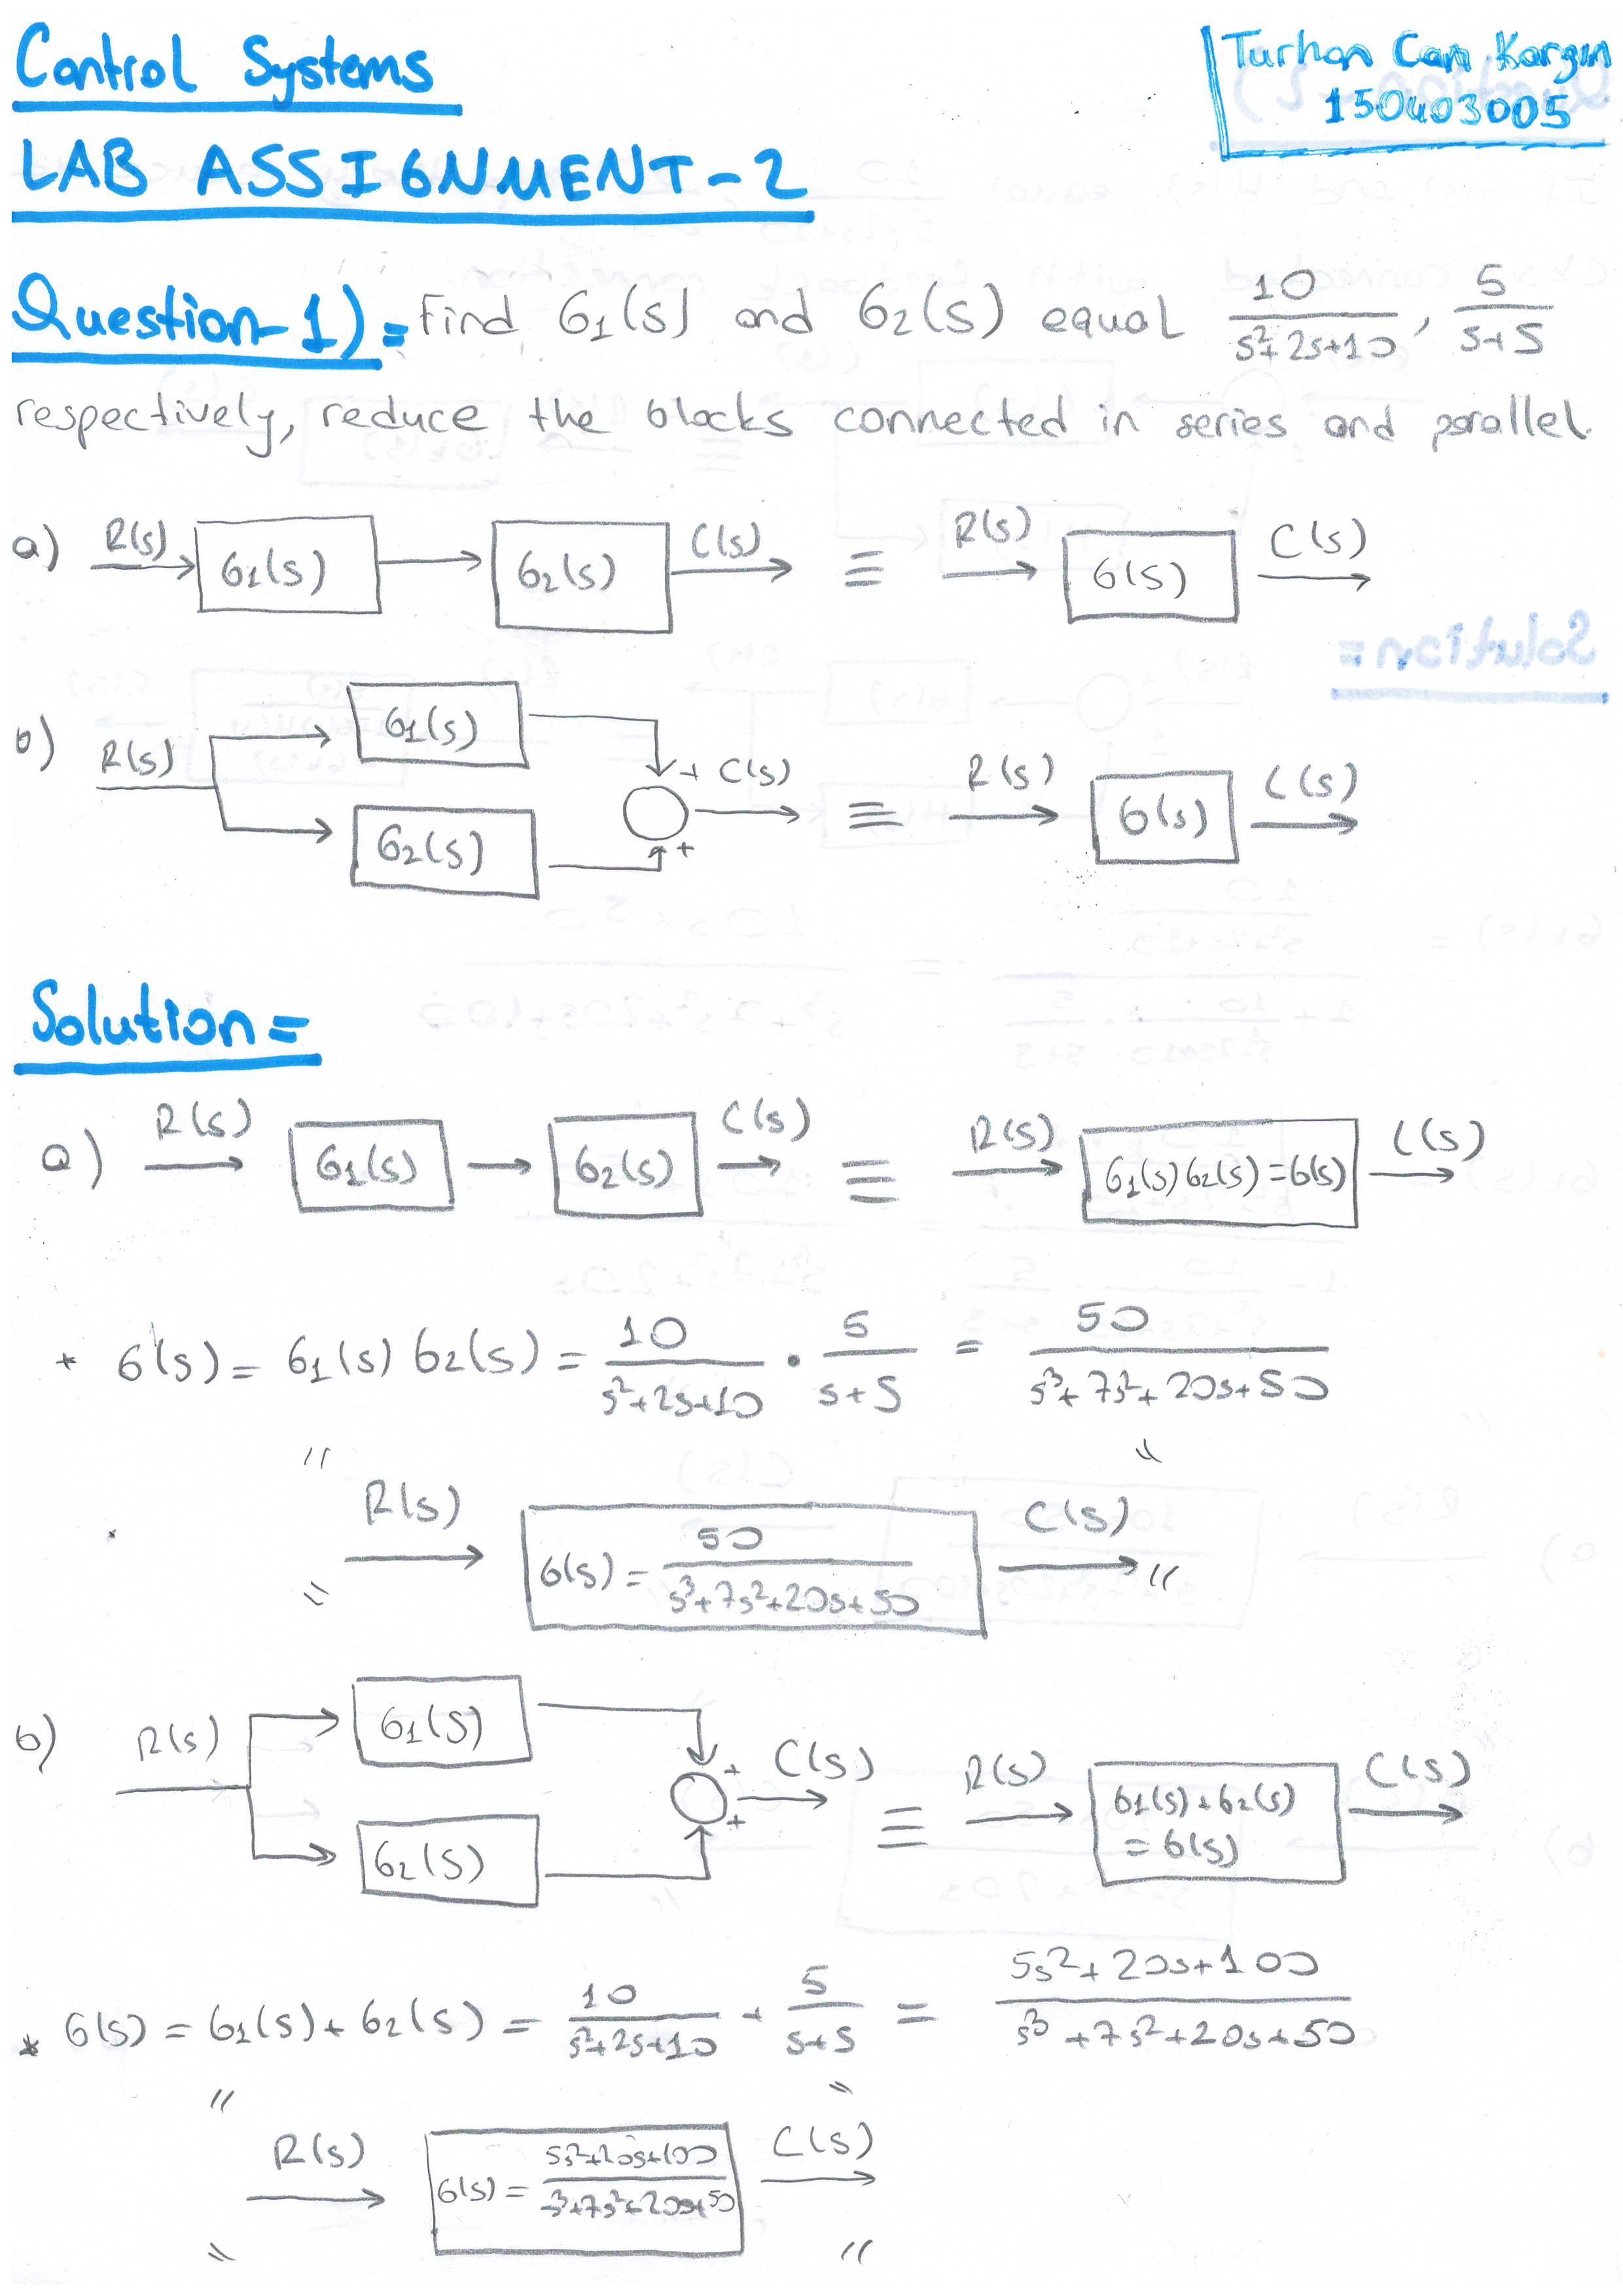 Control Systems
Turhan Can Kargın
150403005
LAB ASSIGNMENT-2
Question-1)= Find G1(s) and G2(s) equal 10/(s²+2s+10), 5/(s+5)
respectively, reduce the blocks connected in series and parallel.
a) R(s) G1(s) G2(s) C(s) ≡ R(s) G(s) C(s)
b) R(s) G1(s) G2(s) + + C(s) ≡ R(s) G(s) C(s)
Solution=
a) R(s) G1(s) G2(s) C(s) ≡ R(s) G1(s)G2(s)=G(s) C(s)
* G(s) = G1(s) G2(s) = 10/(s²+2s+10) · 5/(s+5) = 50/(s³+7s²+20s+50)
" "
R(s) G(s) = 50/(s³+7s²+20s+50) C(s)
" "
b) R(s) G1(s) G2(s) + + C(s) ≡ R(s) G1(s)+G2(s) = G(s) C(s)
* G(s) = G1(s) + G2(s) = 10/(s²+2s+10) + 5/(s+5) = (5s²+20s+100)/(s³+7s²+20s+50)
" "
R(s) G(s) = (5s²+20s+100)/(s³+7s²+20s+50) C(s)
" "